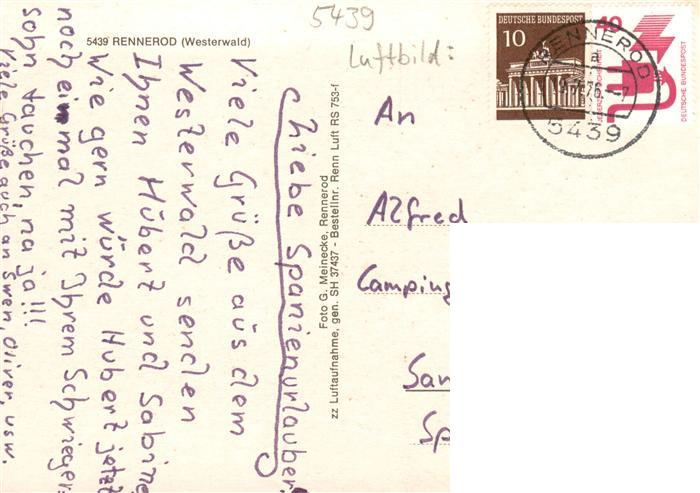 5439
Luftbild:
5439 RENNEROD (Westerwald)
Liebe Spanienurlauber!
Viele Grüße aus dem
Westerwald senden
Ihnen Hubert und Sabine
Wie gern würde Hubert jetzt
noch einmal mit Ihrem Schwieger-
sohn tauchen, na ja!!!
Viele Grüße auch an Swen, Oliver, usw.
Foto G. Meinecke, Rennerod
zz Luftaufnahme, gen. SH 37437 - Bestellnr. Renn Luft RS 753-f
DEUTSCHE BUNDESPOST
10
DEUTSCHE BUNDESPOST
RENNEROD
a
76.-7
5439
An
Alfred
Camping
San
Sp